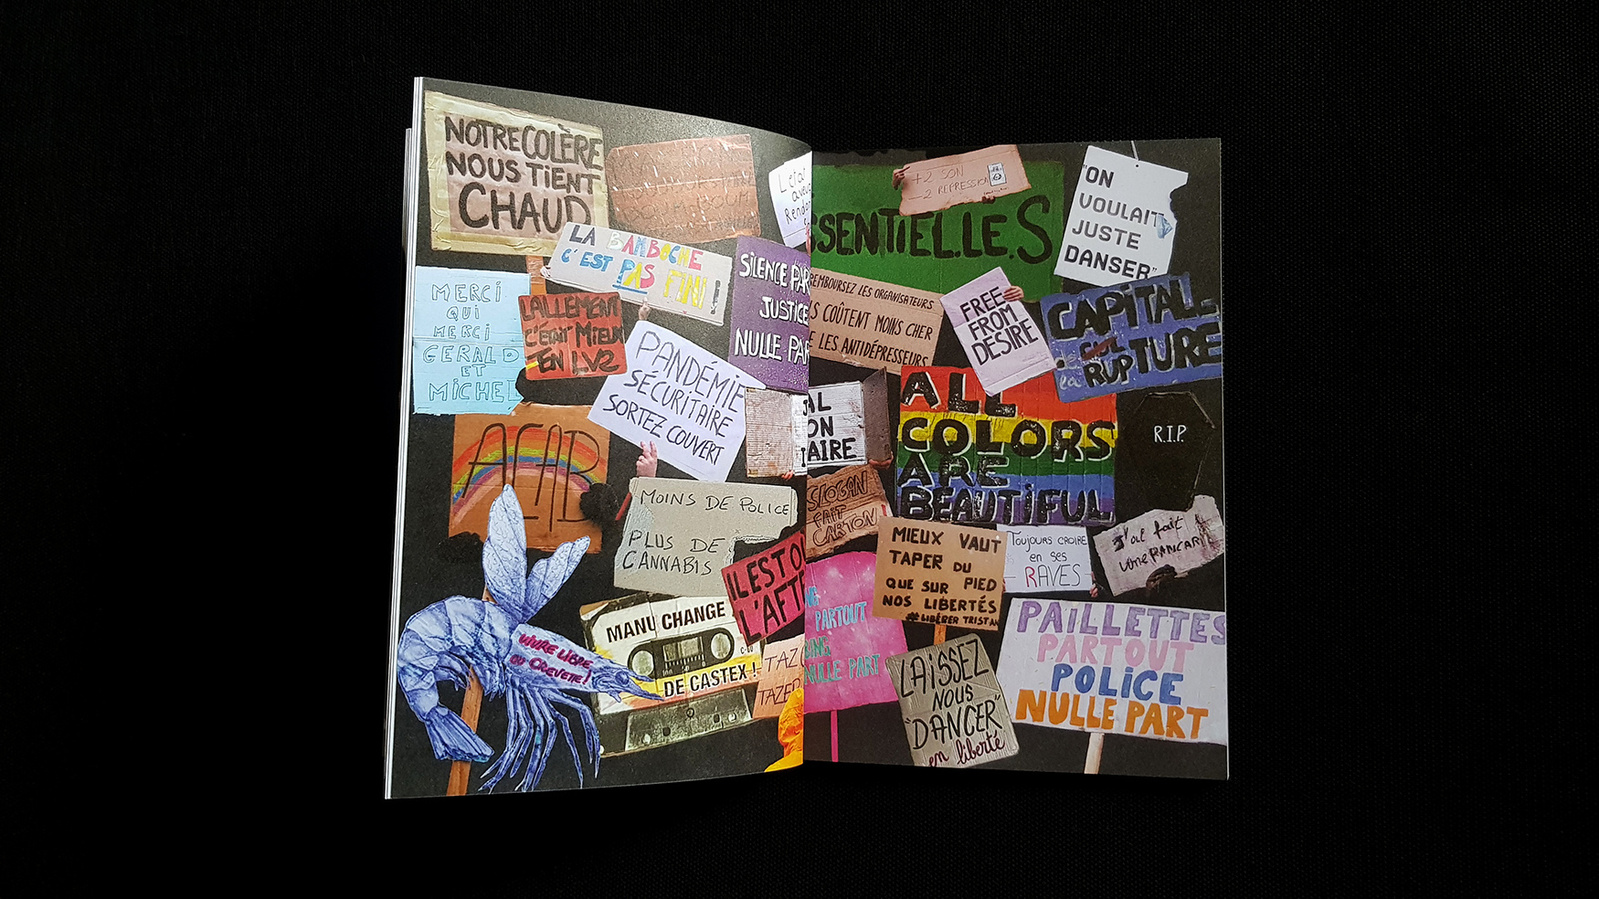 NOTRE COLÈRE
NOUS TIENT
CHAUD
LA BAMBOCHE
C'EST PAS FINI!
MERCI
QUI
MERCI
GERALD
ET
MICHEL
LALLEMENT
C'ÉTAIT MIEUX
EN LV2
SILENCE PAR
JUSTICE
NULLE PAR
PANDÉMIE
SÉCURITAIRE
SORTEZ COUVERT
ACAB
MOINS DE POLICE
PLUS DE
CANNABIS
IL EST OÙ
L'AFTE
MANU CHANGE
DE CASTEX !
VIVRE LIBRE
OU CREVETTE!
TAZ
TAZER
+2 SON
-2 REPRESSION
SSENTIEL.LE.S
"ON
VOULAIT
JUSTE
DANSER"
REMBOURSEZ LES ORGANISATEURS
S COÛTENT MOINS CHER
E LES ANTIDÉPRESSEURS
FREE
FROM
DESIRE
CAPITALE
de
la RUPTURE
AL
ON
AIRE
ALL
COLORS
ARE
BEAUTIFUL
R.I.P.
SLOGAN
FAIT
CARTON
MIEUX VAUT
TAPER DU
QUE SUR PIED
NOS LIBERTÉS
#LIBÉRER TRISTAN
TOUJOURS CROIRE
en ses
RAVES
J'ai fait
une PANCARTE
NG
PARTOUT
DING
NULLE PART
LAISSEZ
NOUS
"DANCER"
en liberté
PAILLETTES
PARTOUT
POLICE
NULLE PART